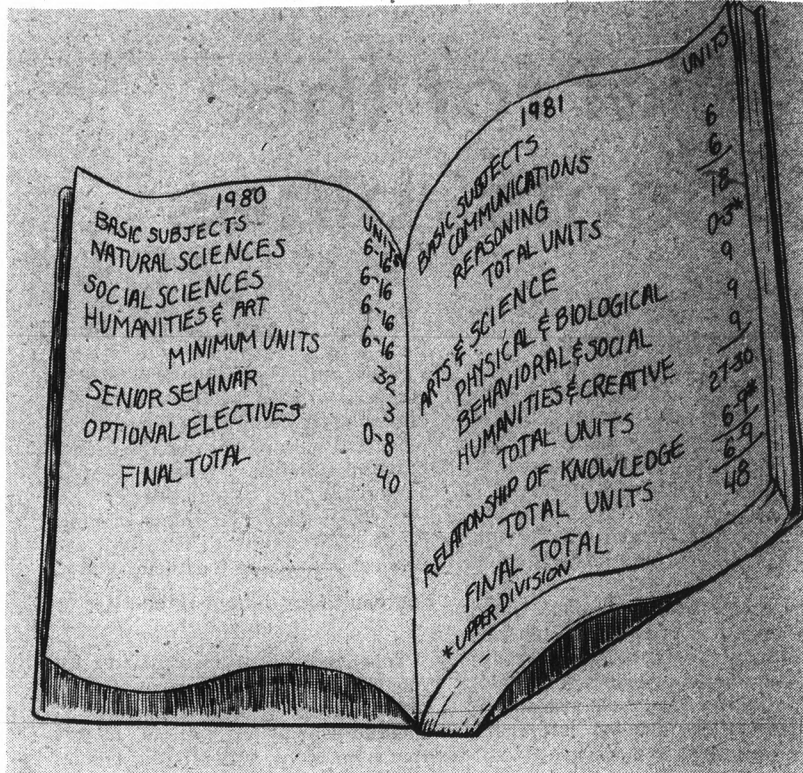 1980
UNITS
BASIC SUBJECTS 6-16*
NATURAL SCIENCES 6-16
SOCIAL SCIENCES 6-16
HUMANITIES & ART 6-16
MINIMUM UNITS 32
SENIOR SEMINAR 3
OPTIONAL ELECTIVES 0-8
FINAL TOTAL 40
1981
UNITS
BASIC SUBJECTS
COMMUNICATIONS 6
REASONING 6
TOTAL UNITS 18
ARTS & SCIENCE 0-3*
PHYSICAL & BIOLOGICAL 9
BEHAVIORAL & SOCIAL 9
HUMANITIES & CREATIVE 9
TOTAL UNITS 27-30
RELATIONSHIP OF KNOWLEDGE 6-9*
TOTAL UNITS 6-9
FINAL TOTAL 48
* UPPER DIVISION